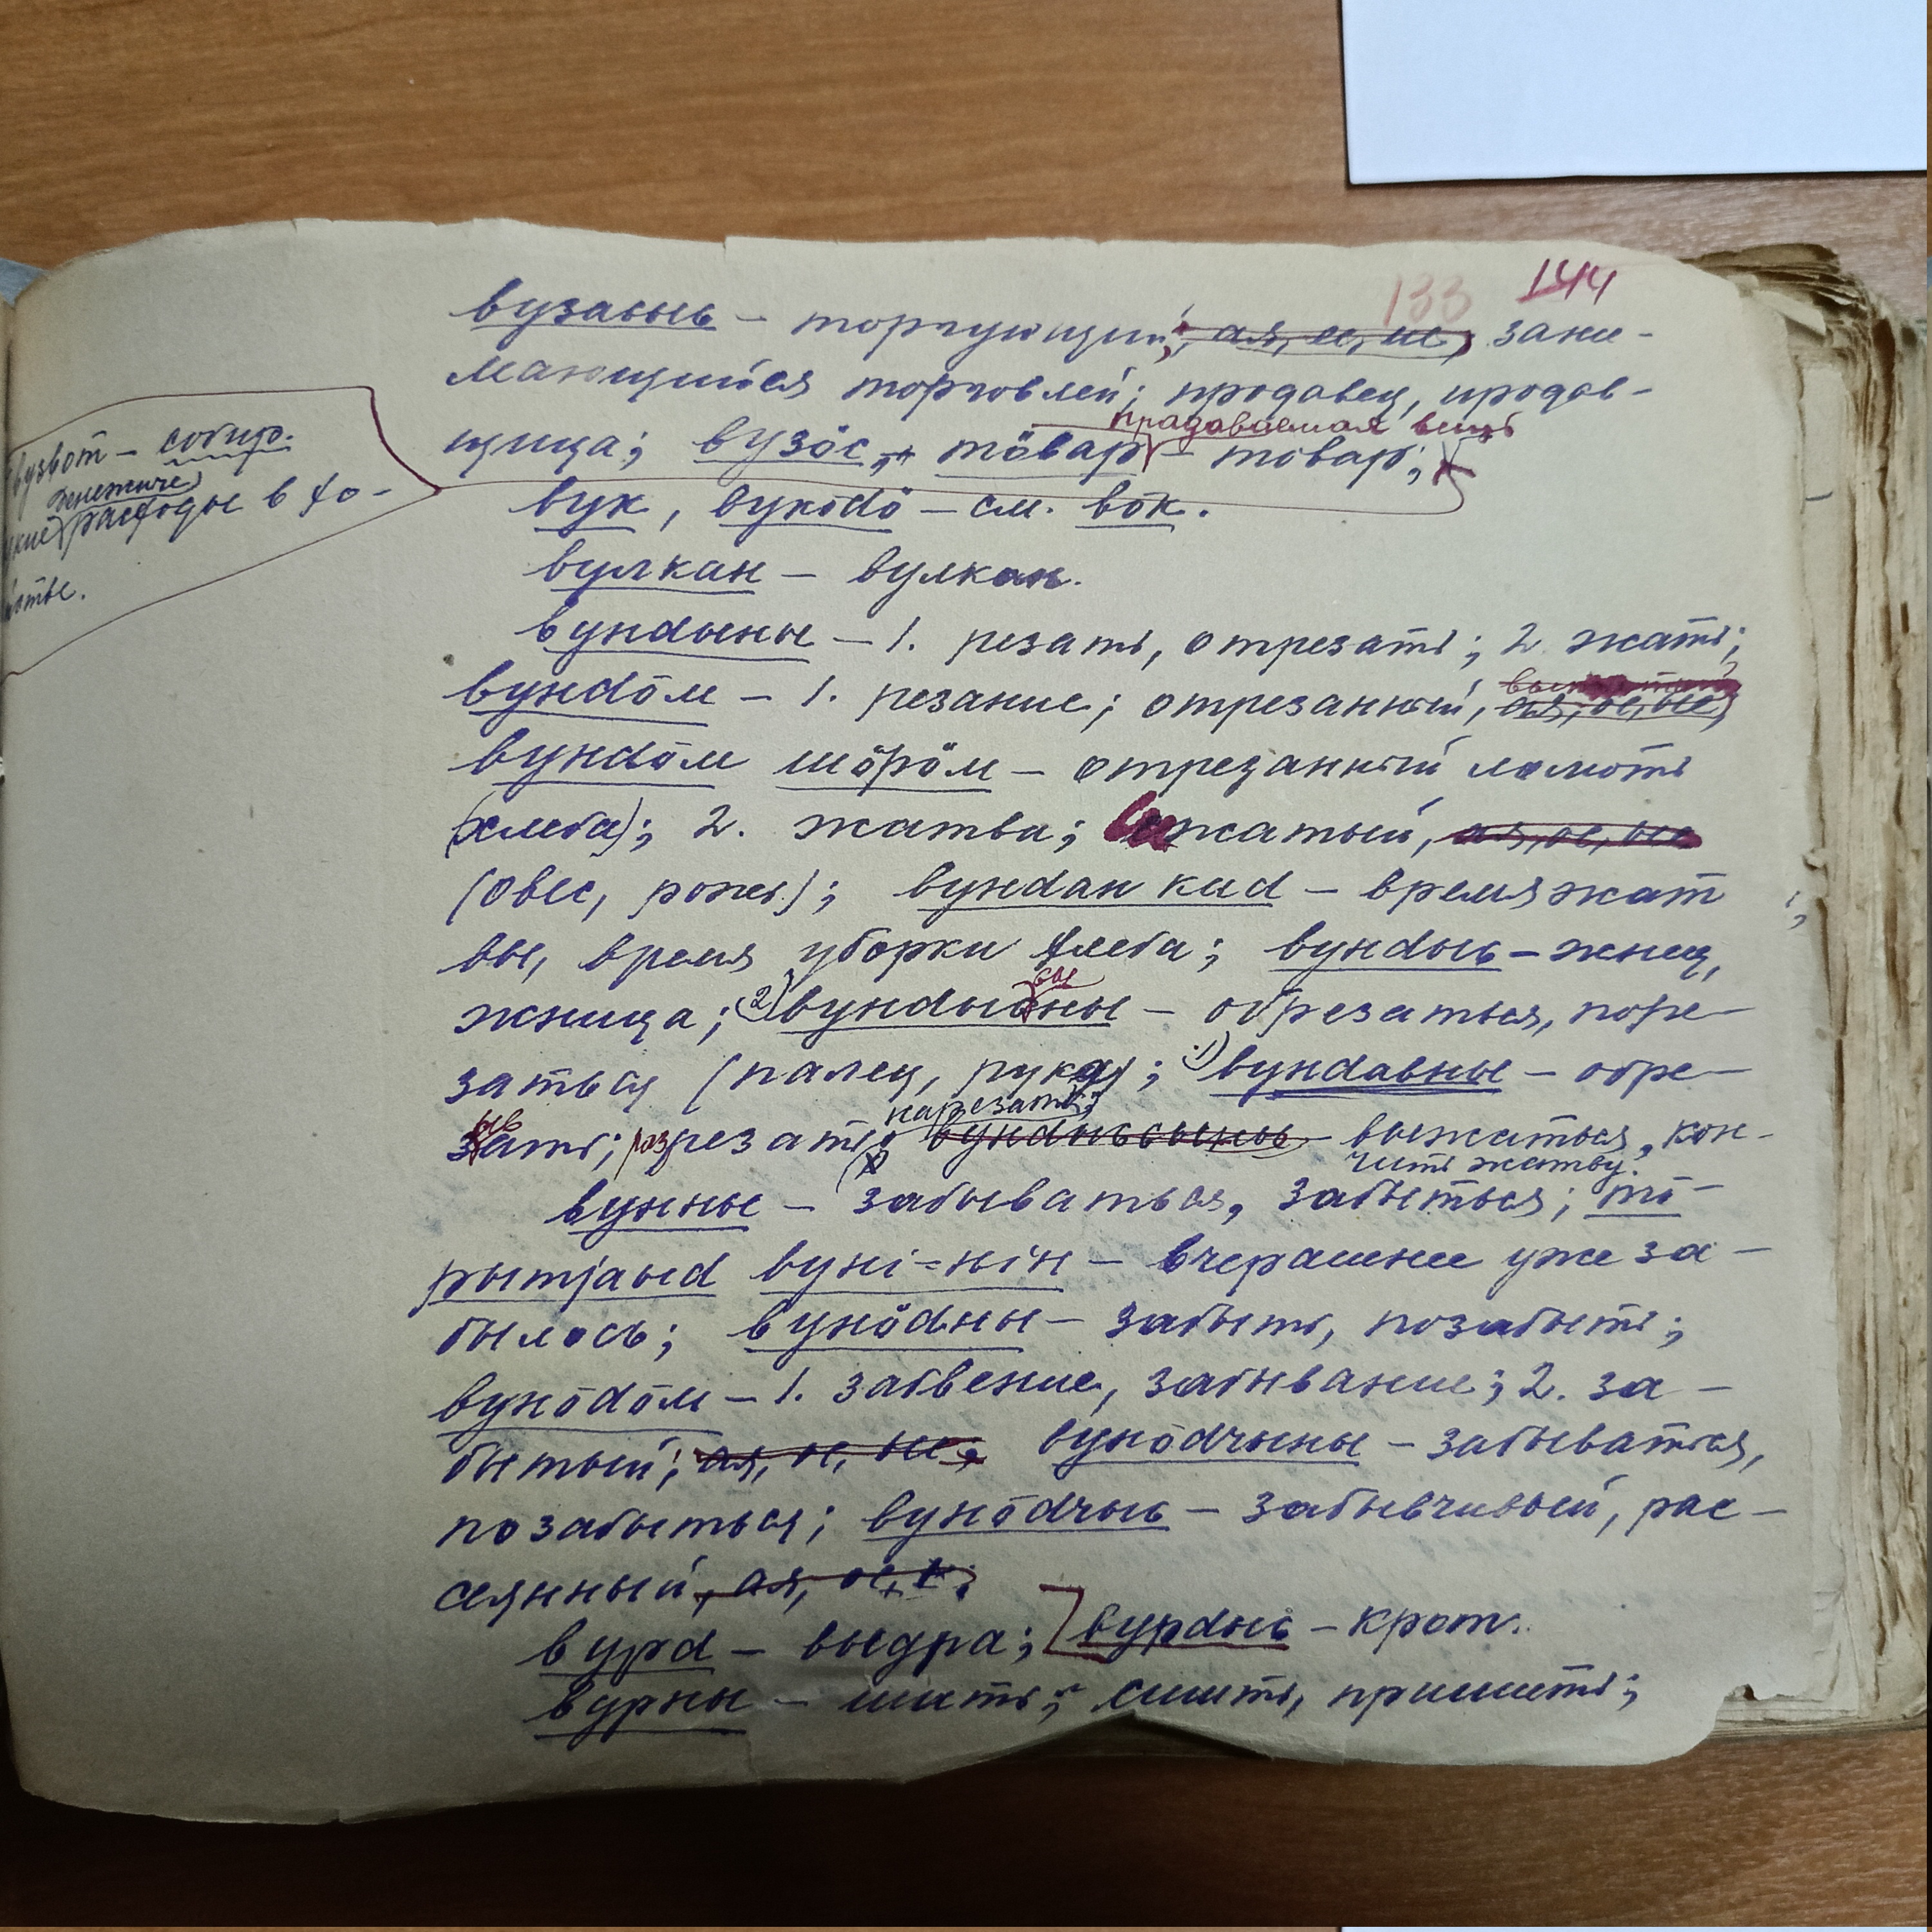 133 144
вузасыс – торгующий; ая, ее, ие, зани-
мающийся торговлей; продавец, продав-
продаваемая вещь
щица; вузӧс, тӧвар – товар;
вузвот – собир.
денежные
расходы в хо-
вук, вукӧdӧ – см. вӧк.
вулкан – вулкан.
вундыны – 1. резать, отрезать; 2. жать;
вундӧм – 1. резание; отрезанный, ая, ое, ые,
вундӧм шӧрӧм – отрезанный ломоть
(хлеба); 2. жатва; сжатый, ая, ое, ые
(овес, рожь); вундан кад – время жат
вы, время уборки хлеба; вундыс – жнец,
жница; 2) вундысны – обрезаться, поре-
сы
заться (палец, рука); 1) вундавны – обре-
ыв нарезать;
зать; разрезать; выжаться, кон-
чить жатву.
вунны – забываться, забыться; тӧ-
рытјаыd вуні-нін – вчерашнее уже за-
былось; вунӧdны – забыть, позабыть;
вунӧdӧм – 1. забвение, забывание; 2. за-
бытый; ая, ое, ые; вунӧdчыны – забываться,
позабыться; вунӧdчыс – забывчивый, рас-
сеянный, ая, ое,
вурd – выдра; вурdыс – крот.
вурны – шить; сшить, пришить;